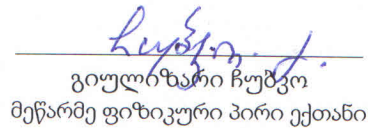 გიულიზარი ჩუშკო
მეწარმე ფიზიკური პირი ექთანი